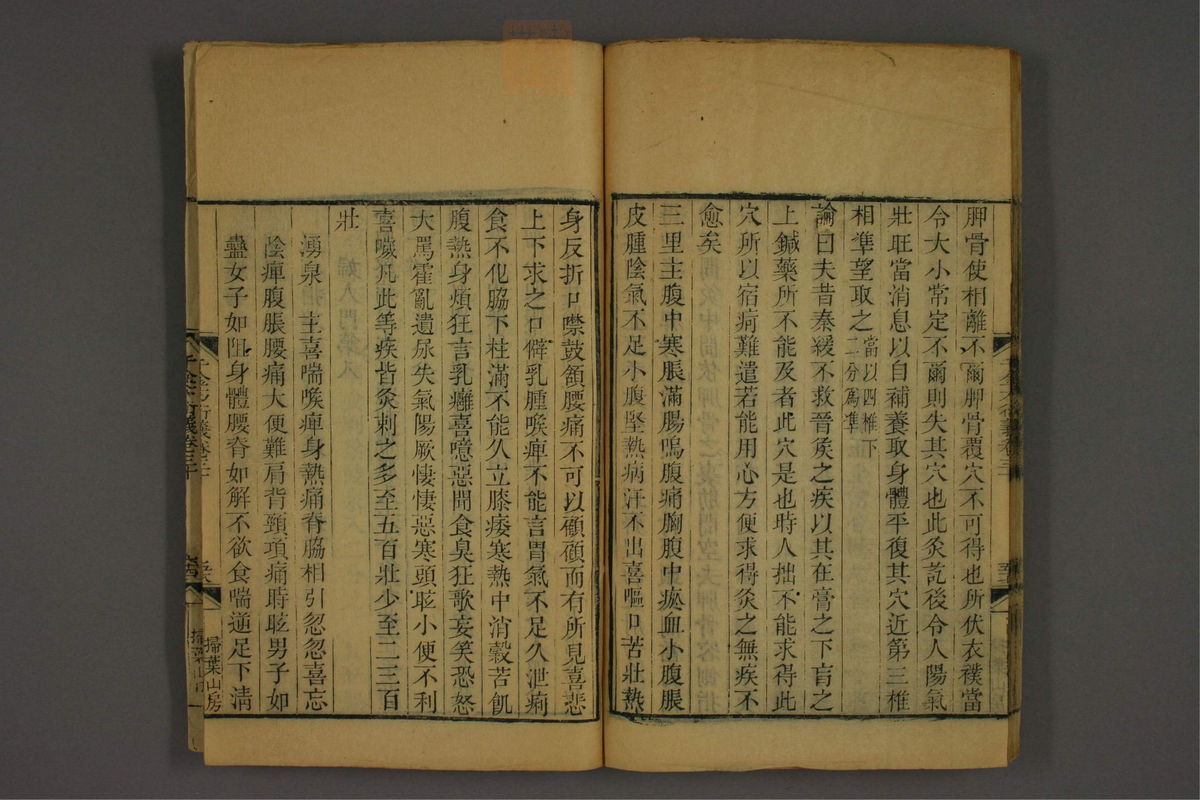 胛骨使相離不爾胛骨覆穴不可得也所伏衣襆當
令大小常定不爾則失其穴也此灸訖後令人陽氣
壯旺當消息以自補養取身體平復其穴近第三椎
相準望取之當以四椎下二分爲準
論曰夫昔秦緩不救晉侯之疾以其在膏之下肓之
上鍼藥所不能及者此穴是也時人拙不能求得此
穴所以宿疴難遣若能用心方便求得灸之無疾不
愈矣
三里主腹中寒脹滿腸鳴腹痛胸腹中瘀血小腹脹
皮腫陰氣不足小腹堅熱病汗不出喜嘔口苦壯熱
身反折口噤鼓頷腰痛不可以顧顧而有所見喜悲
上下求之口僻乳腫喉痺不能言胃氣不足久泄痢
食不化脇下柱滿不能久立膝痿寒熱中消穀苦飢
腹熱身煩狂言乳癰喜噫惡聞食臭狂歌妄笑恐怒
大罵霍亂遺尿失氣陽厥悽悽惡寒頭眩小便不利
喜噦凡此等疾皆灸刺之多至五百壯少至二三百
壯
湧泉 主喜喘喉痺身熱痛脊脇相引忽忽喜忘
陰痺腹脹腰痛大便難肩背頸項痛時眩男子如
蠱女子如阻身體腰脊如解不欲食喘逆足下清
掃葉山房